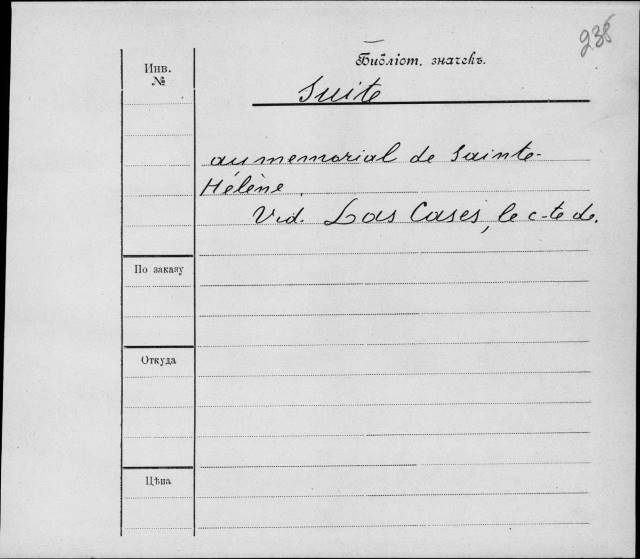 238
Инв.
№
Библіот. значекъ.
Suite
au memorial de Sainte-
Hélène.
Vid. Las Cases, le c-te de.
По заказу
Откуда
Цѣна